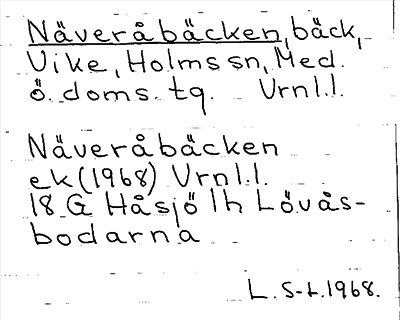 Näveråbäcken, bäck,
Vike, Holms sn, Med.
ö. doms. tg. Vrnl.l.
Näveråbäcken
ek (1968) Vrnl.l.
18 G Håsjö 1h Lövås-
bodarna
L. S-L. 1968.